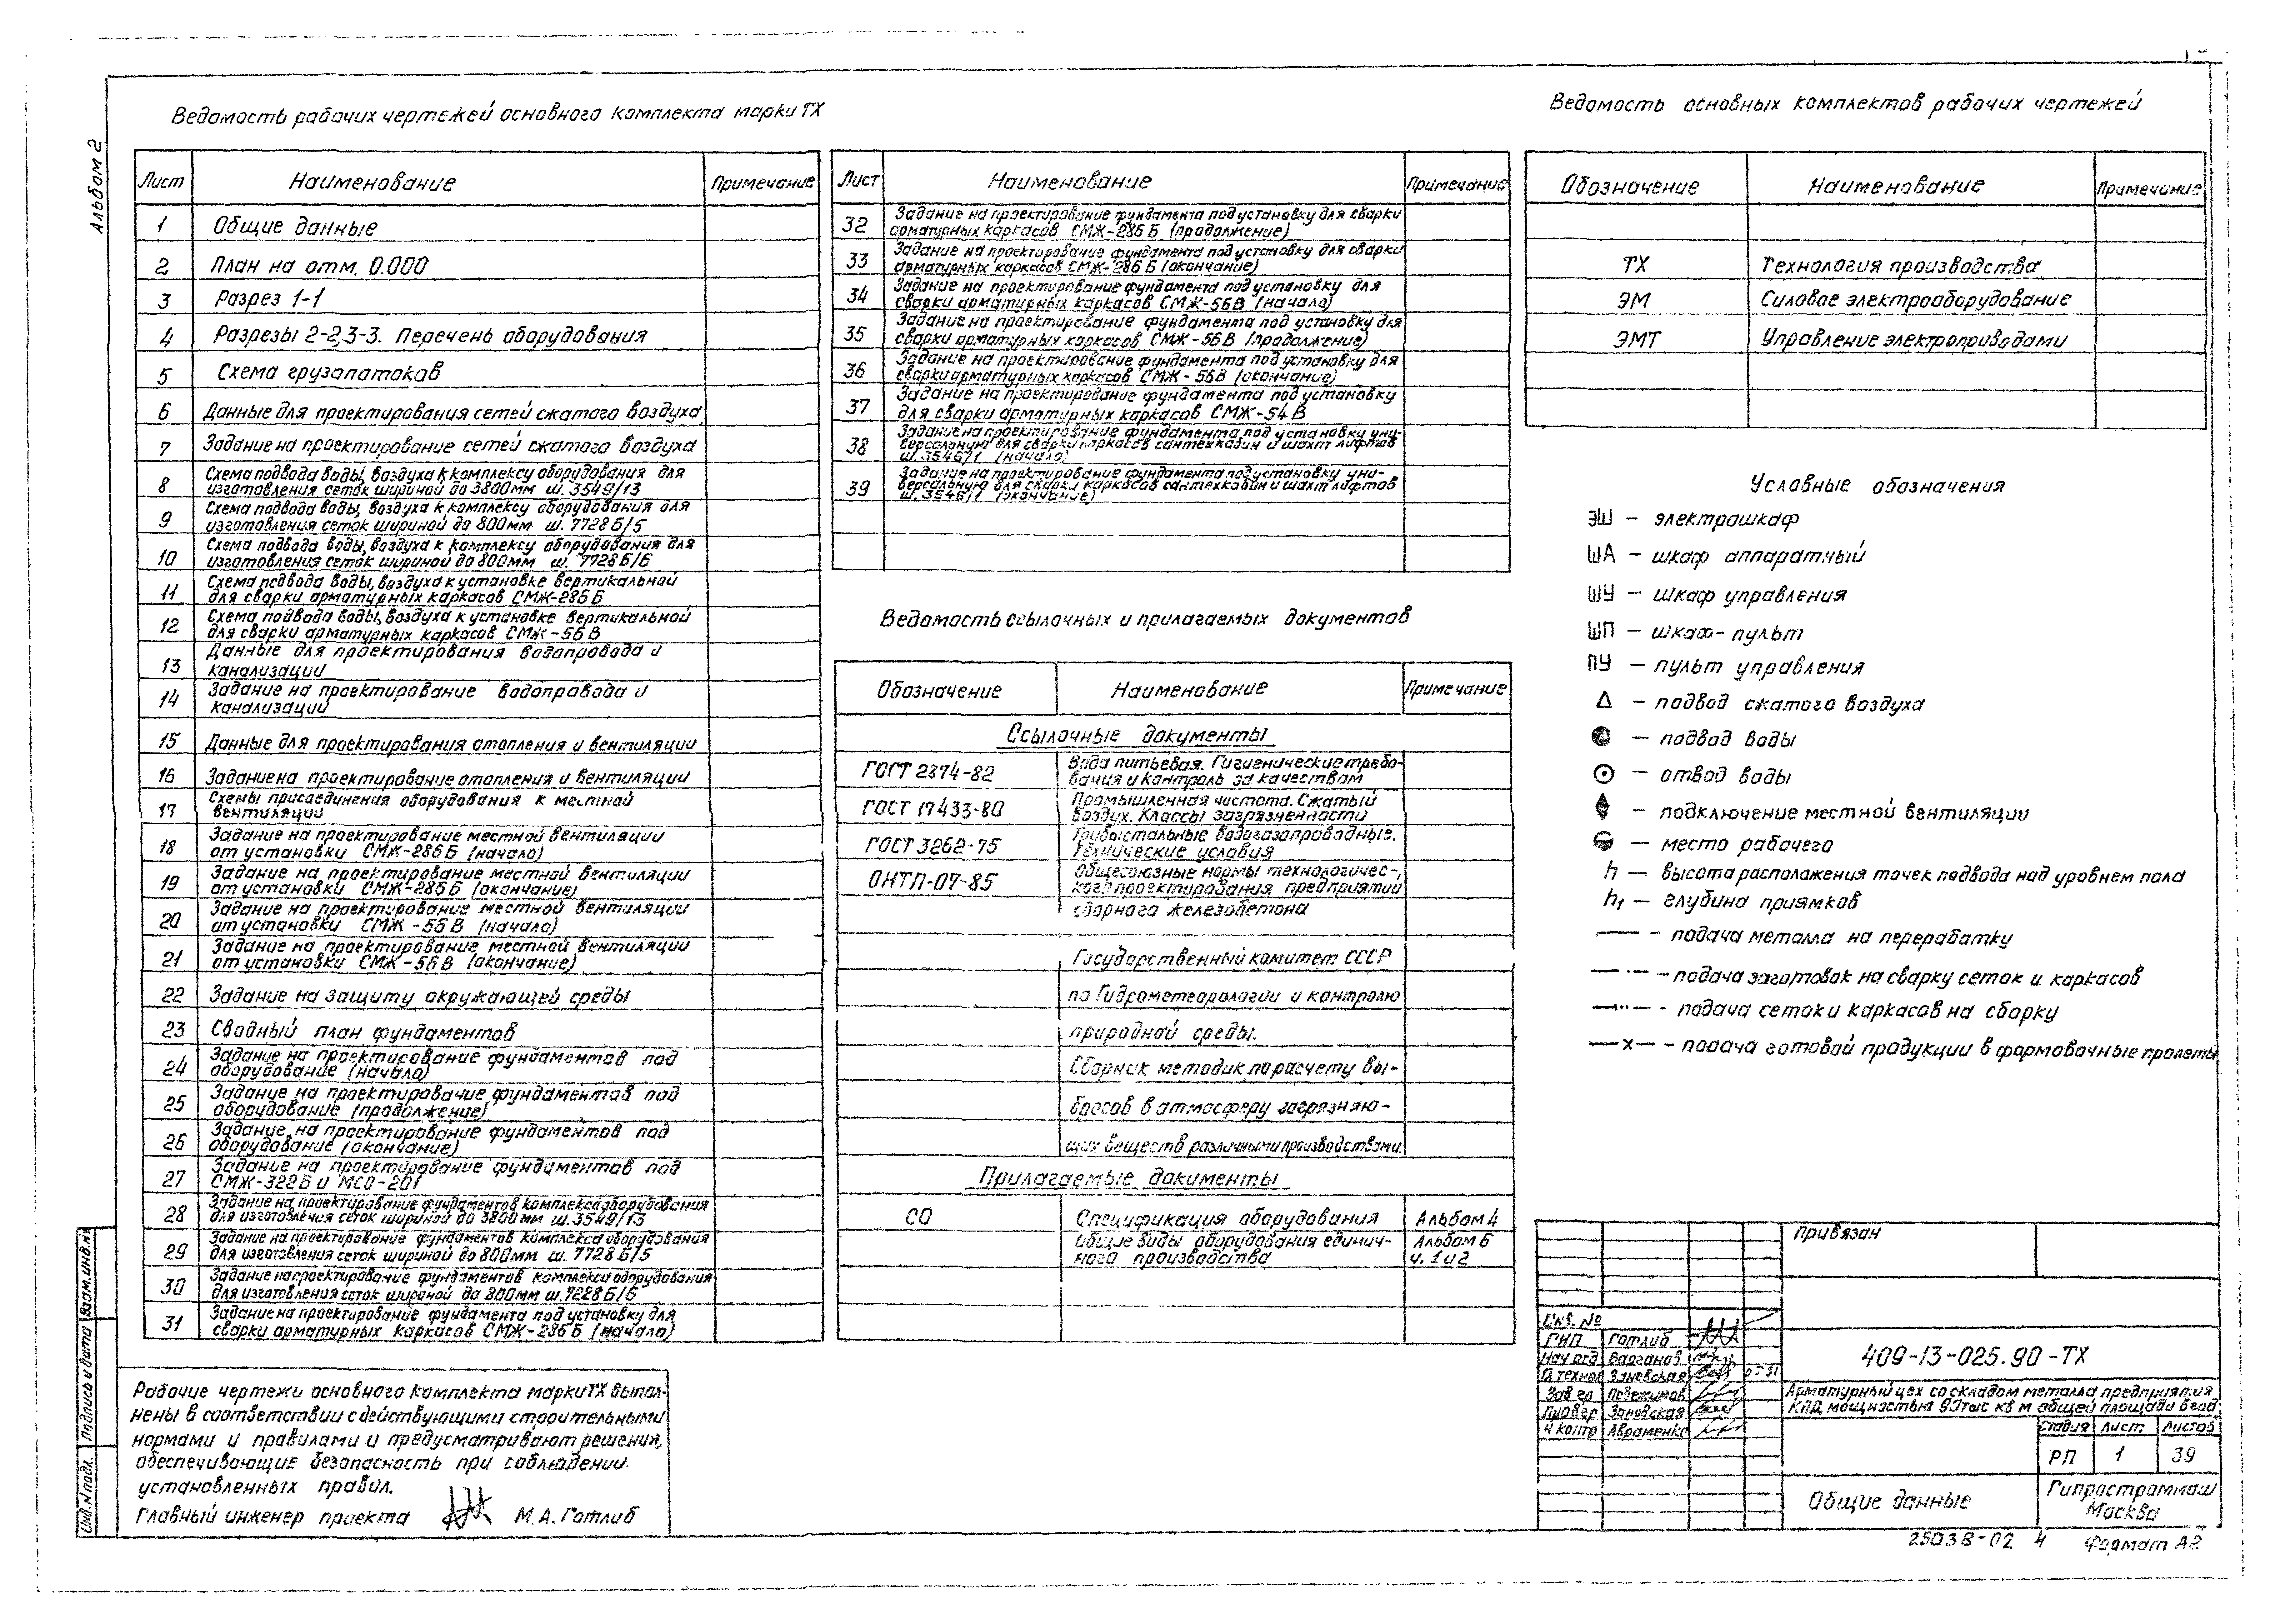 Альбом 2
Ведомость рабочих чертежей основного комплекта марки ТХ
Лист Наименование Примечание
1 Общие данные
2 План на отм. 0.000
3 Разрез 1-1
4 Разрезы 2-2,3-3. Перечень оборудования
5 Схема грузопотоков
6 Данные для проектирования сетей сжатого воздуха
7 Задание на проектирование сетей сжатого воздуха
8 Схема подвода воды, воздуха к комплексу оборудования для
изготовления сеток шириной до 3800мм ш. 3549/13
9 Схема подвода воды, воздуха к комплексу оборудования для
изготовления сеток шириной до 800мм ш. 7728Б/5
10 Схема подвода воды, воздуха к комплексу оборудования для
изготовления сеток шириной до 800мм ш. 7728Б/Б
11 Схема подвода воды, воздуха к установке вертикальной
для сварки арматурных каркасов СМЖ-286Б
12 Схема подвода воды, воздуха к установке вертикальной
для сварки арматурных каркасов СМЖ-56В
13 Данные для проектирования водопровода и
канализации
14 Задание на проектирование водопровода и
канализации
15 Данные для проектирования отопления и вентиляции
16 Задание на проектирование отопления и вентиляции
17 Схемы присоединения оборудования к местной
вентиляции
18 Задание на проектирование местной вентиляции
от установки СМЖ-286Б (начало)
19 Задание на проектирование местной вентиляции
от установки СМЖ-286Б (окончание)
20 Задание на проектирование местной вентиляции
от установки СМЖ-56В (начало)
21 Задание на проектирование местной вентиляции
от установки СМЖ-56В (окончание)
22 Задание на защиту окружающей среды
23 Сводный план фундаментов
24 Задание на проектирование фундаментов под
оборудование (начало)
25 Задание на проектирование фундаментов под
оборудование (продолжение)
26 Задание на проектирование фундаментов под
оборудование (окончание)
27 Задание на проектирование фундаментов под
СМЖ-322Б и МСО-201
28 Задание на проектирование фундаментов комплекса оборудования
для изготовления сеток шириной до 3800мм ш.3549/13
29 Задание на проектирование фундаментов комплекса оборудования
для изготовления сеток шириной до 800мм ш. 7728Б/5
30 Задание на проектирование фундаментов комплекса оборудования
для изготовления сеток шириной до 800мм ш.7228Б/Б
31 Задание на проектирование фундамента под установку для
сварки арматурных каркасов СМЖ-286Б (начало)
Лист Наименование Примечание
32 Задание на проектирование фундамента под установку для сварки
арматурных каркасов СМЖ-286Б (продолжение)
33 Задание на проектирование фундамента под установку для сварки
арматурных каркасов СМЖ-286Б (окончание)
34 Задание на проектирование фундамента под установку для
сварки арматурных каркасов СМЖ-56В (начало)
35 Задание на проектирование фундамента под установку для
сварки арматурных каркасов СМЖ-56В (продолжение)
36 Задание на проектирование фундамента под установку для
сварки арматурных каркасов СМЖ-56В (окончание)
37 Задание на проектирование фундамента под установку
для сварки арматурных каркасов СМЖ-54В
38 Задание на проектирование фундамента под установку уни-
версальную для сварки каркасов сантехкабин и шахт лифтов
ш.3546/1 (начало)
39 Задание на проектирование фундамента под установку уни-
версальную для сварки каркасов сантехкабин и шахт лифтов
ш.3546/1 (окончание)
Ведомость ссылочных и прилагаемых документов
Обозначение Наименование Примечание
Ссылочные документы
ГОСТ 2874-82 Вода питьевая. Гигиенические требо-
вания и контроль за качеством
ГОСТ 17433-80 Промышленная чистота. Сжатый
воздух. Классы загрязненности
ГОСТ 3262-75 Трубы стальные водогазопроводные.
Технические условия
ОНТП-07-85 Общесоюзные нормы технологичес-
кого проектирования предприятий
сборного железобетона
Государственный комитет СССР
по Гидрометеорологии и контролю
природной среды.
Сборник методик по расчету вы-
бросов в атмосферу загрязняю-
щих веществ различными производствами.
Прилагаемые документы
СО Спецификация оборудования Альбом 4
Общие виды оборудования единич- Альбом Б
ного производства ч. 1 и 2
Ведомость основных комплектов рабочих чертежей
Обозначение Наименование Примечание
ТХ Технология производства
ЭМ Силовое электрооборудование
ЭМТ Управление электроприводами
Условные обозначения
ЭШ – электрошкаф
ША – шкаф аппаратный
ШУ – шкаф управления
ШП – шкаф-пульт
ПУ – пульт управления
Δ – подвод сжатого воздуха
– подвод воды
– отвод воды
– подключение местной вентиляции
– место рабочего
h – высота расположения точек подвода над уровнем пола
h₁ – глубина приямков
– подача металла на переработку
– подача заготовок на сварку сеток и каркасов
– подача сеток и каркасов на сборку
—х— – подача готовой продукции в формовочные пролеты
Рабочие чертежи основного комплекта марки ТХ выпол-
нены в соответствии с действующими строительными
нормами и правилами и предусматривают решения,
обеспечивающие безопасность при соблюдении
установленных правил.
Главный инженер проекта М.А. Готлиб
Инв.N подл. Подпись и дата Взам.инв.№
Привязан
Инв. №
ГИП Готлиб
Нач отд Варганов
Гл технол
Зав гр
Провер Зановская
Н контр Авраменко
409-13-025.90-ТХ
Арматурный цех со складом металла предприятия
КПД мощностью кв м общей площади в год
Стадия Лист Листов
РП 1 39
Общие данные
Гипростроммаш
Москва
25038-02 4 Формат А2